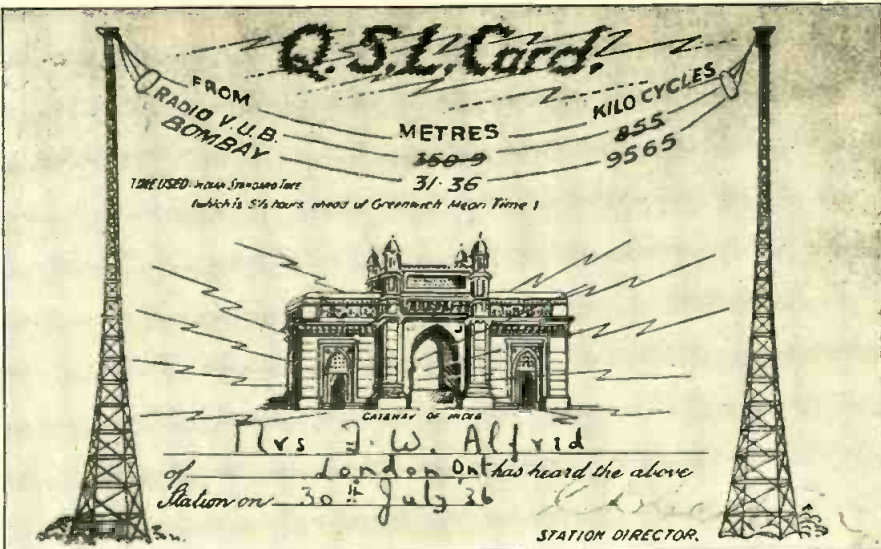 Q.S.L. Card.
FROM
RADIO V.U.B.
BOMBAY
METRES
350·9
31·36
KILO CYCLES
855
9565
TIME USED: INDIAN STANDARD TIME
(which is 5½ hours ahead of Greenwich Mean Time)
GATEWAY OF INDIA
Mrs J. W. Alfrid
of London Ont has heard the above
Station on 30th July 36
STATION DIRECTOR.